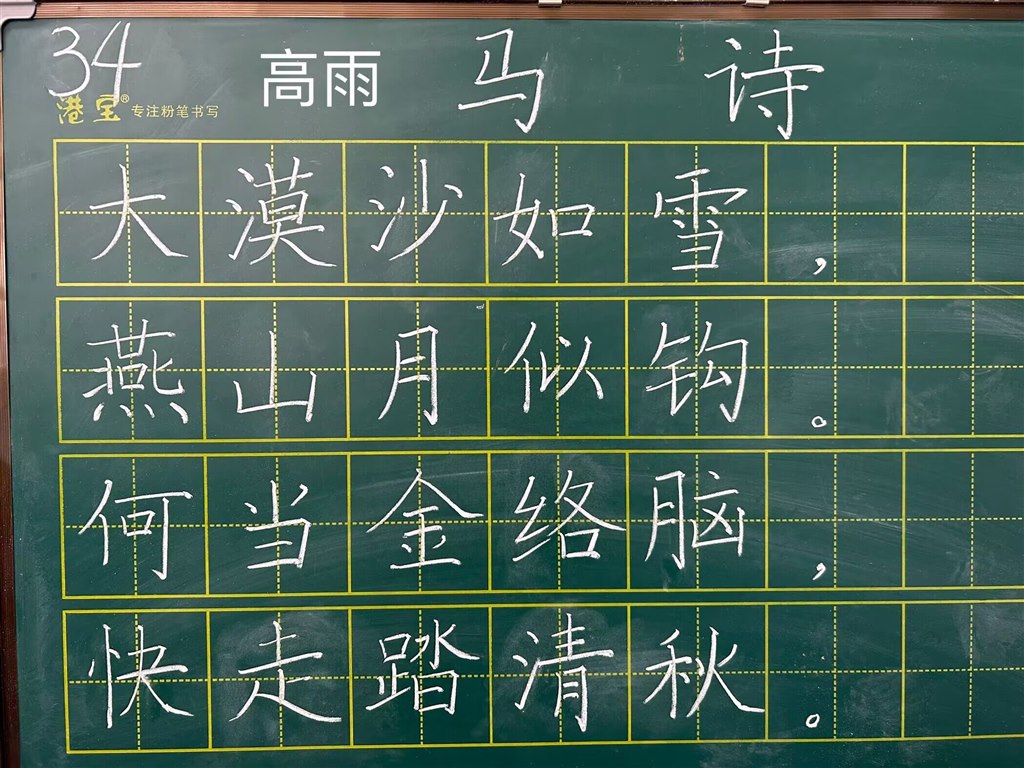 34 高雨 马 诗
港宝® 专注粉笔书写
大漠沙如雪，
燕山月似钩。
何当金络脑，
快走踏清秋。